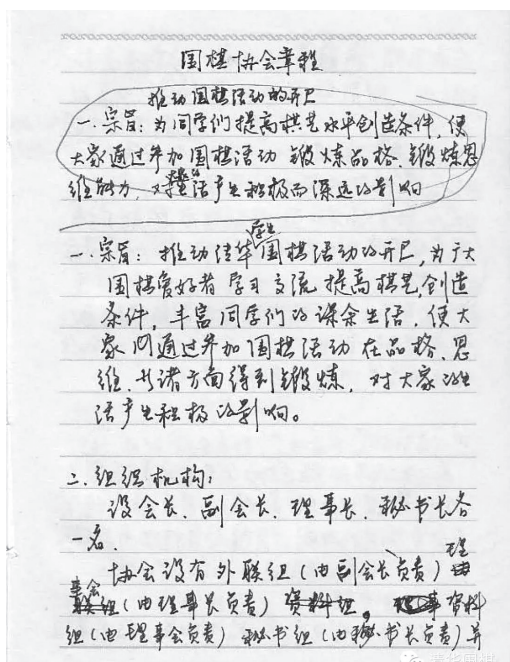 围棋协会章程
推动围棋活动的开展
一.宗旨:为同学们提高棋艺水平创造条件,使
大家通过参加围棋活动锻炼品格、锻炼思
维能力,对整个生活产生积极而深远的影响
学生
一.宗旨:推动清华围棋活动的开展,为广大
围棋爱好者学习交流提高棋艺,创造
条件,丰富同学们的课余生活,使大
家们通过参加围棋活动在品格、思
维、等诸方面得到锻炼,对大家的生
活产生积极的影响。
二.组织机构:
设会长、副会长、理事长、秘书长各
一名.
协会设有外联组(由副会长负责)理
事会(由理事长负责)资料
组(由理事会负责)秘书组(由秘书长负责)并
清华围棋